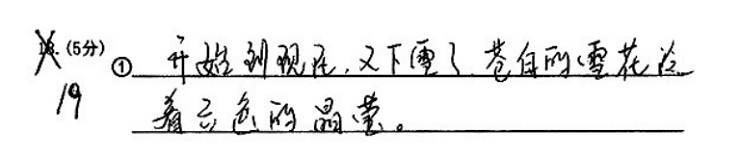 18. (5分) ① 开始到现在,又下雪了苍白的雪花泛
19 着云色的晶莹。